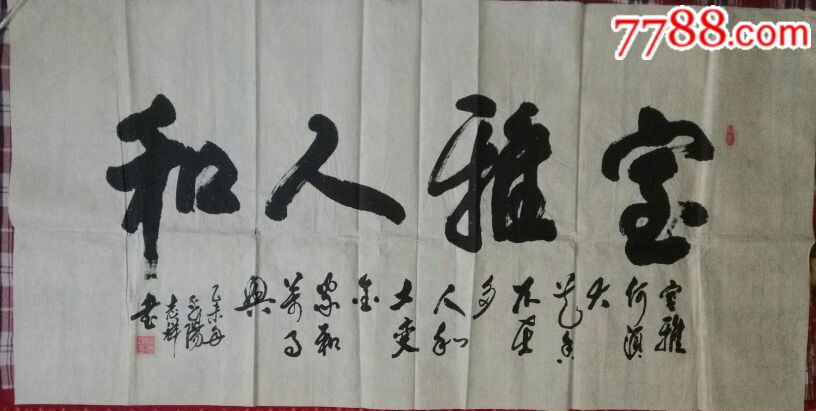 7788.com
室雅人和
室雅
何須
大
花香
不在
多
人和
土變
金
家和
萬事
興
乙未年
陽
志
書